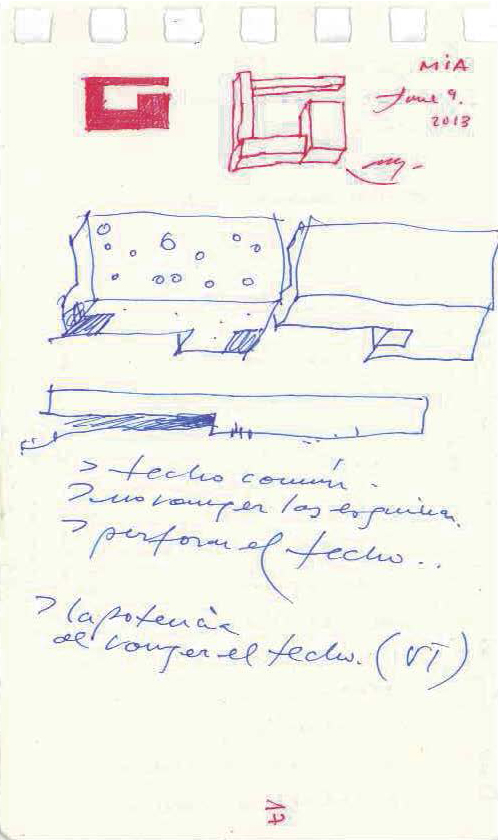 MiA
June 9.
2013
> techo común.
> no romper las esquinas.
> perforar el techo..
> la potencia
de romper el techo. (VT)
17